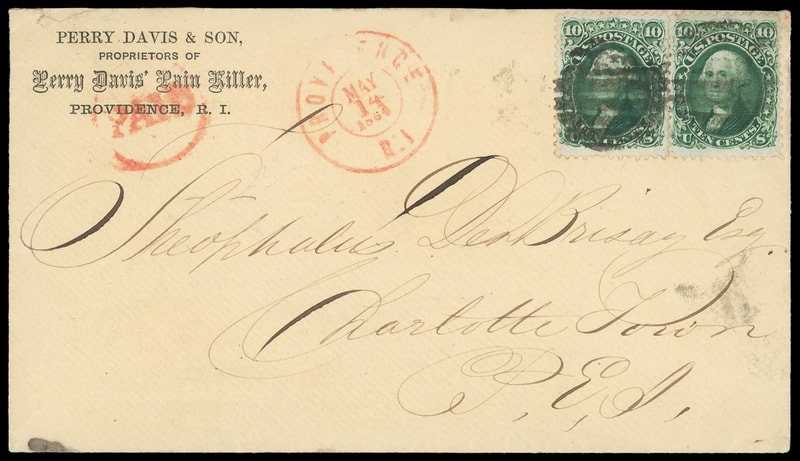 PERRY DAVIS & SON,
PROPRIETORS OF
Perry Davis' Pain Killer,
PROVIDENCE, R. I.
PAID
PROVIDENCE
MAY
14
R.I
10 10
U.S. POSTAGE
U TEN CENTS S
10 10
U.S. POSTAGE
U TEN CENTS S
Theophalus DesBrisay Esq
Charlotte Town
P.E.I.